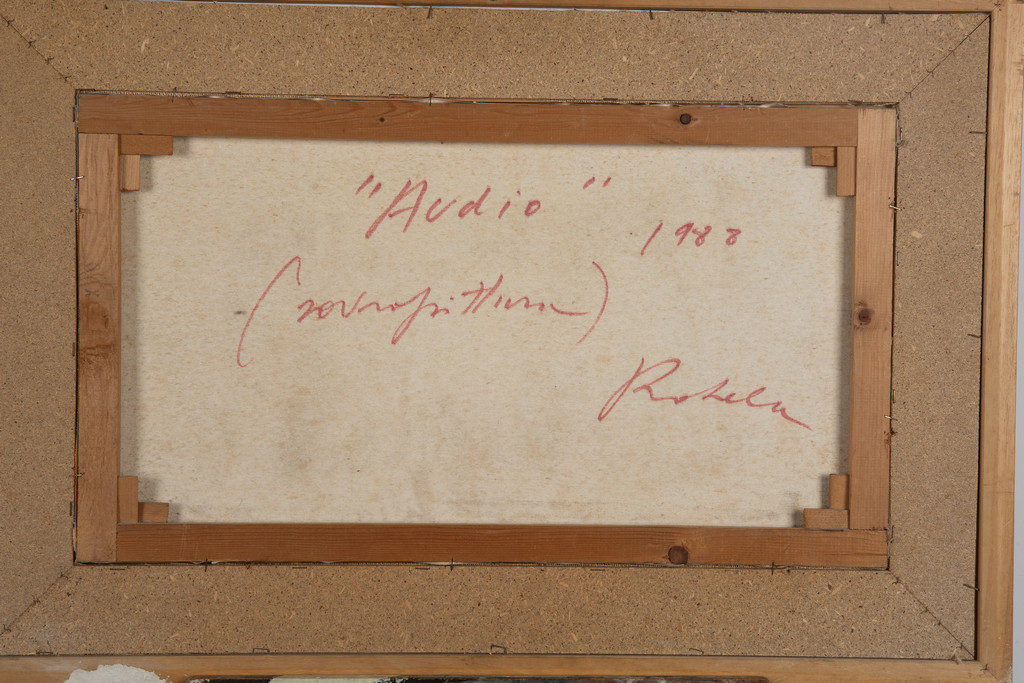 "Audio"
1988
(sovrapittura)
Rotella